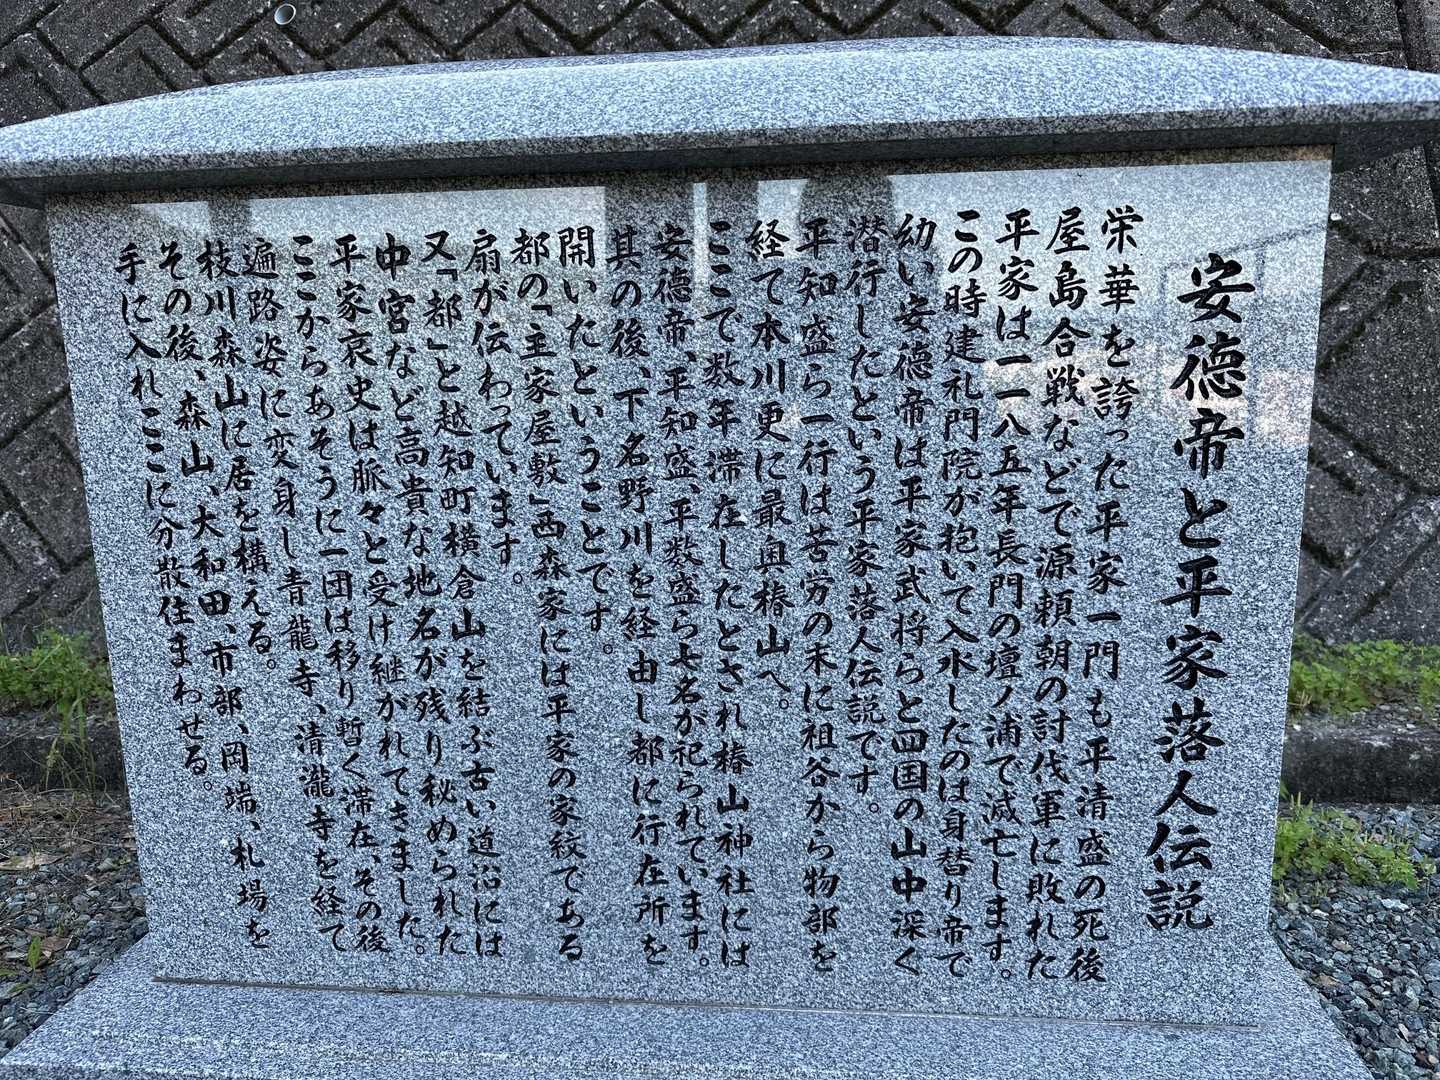 安徳帝と平家落人伝説
栄華を誇った平家一門も平清盛の死後
屋島合戦などで源頼朝の討伐軍に敗れた
平家は一一八五年長門の壇ノ浦で滅亡します。
この時建礼門院が抱いて入水したのは身替り帝で
幼い安徳帝は平家武将らと四国の山中深く
潜行したという平家落人伝説です。
平知盛ら一行は苦労の末に祖谷から物部を
経て本川更に最奥椿山へ。
ここで数年滞在したとされ椿山神社には
安徳帝、平知盛、平数盛ら七名が祀られています。
其の後、下名野川を経由し都に行在所を
開いたということです。
都の「主家屋敷」西森家には平家の家紋である
扇が伝わっています。
又「都」と越知町横倉山を結ぶ古い道沿には
中宮など高貴な地名が残り秘められた
平家哀史は脈々と受け継がれてきました。
ここからあそうに一団は移り暫く滞在、その後
遍路姿に変身し青龍寺、清瀧寺を経て
枝川森山に居を構える。
その後、森山、大和田、市部、岡端、札場を
手に入れここに分散住まわせる。